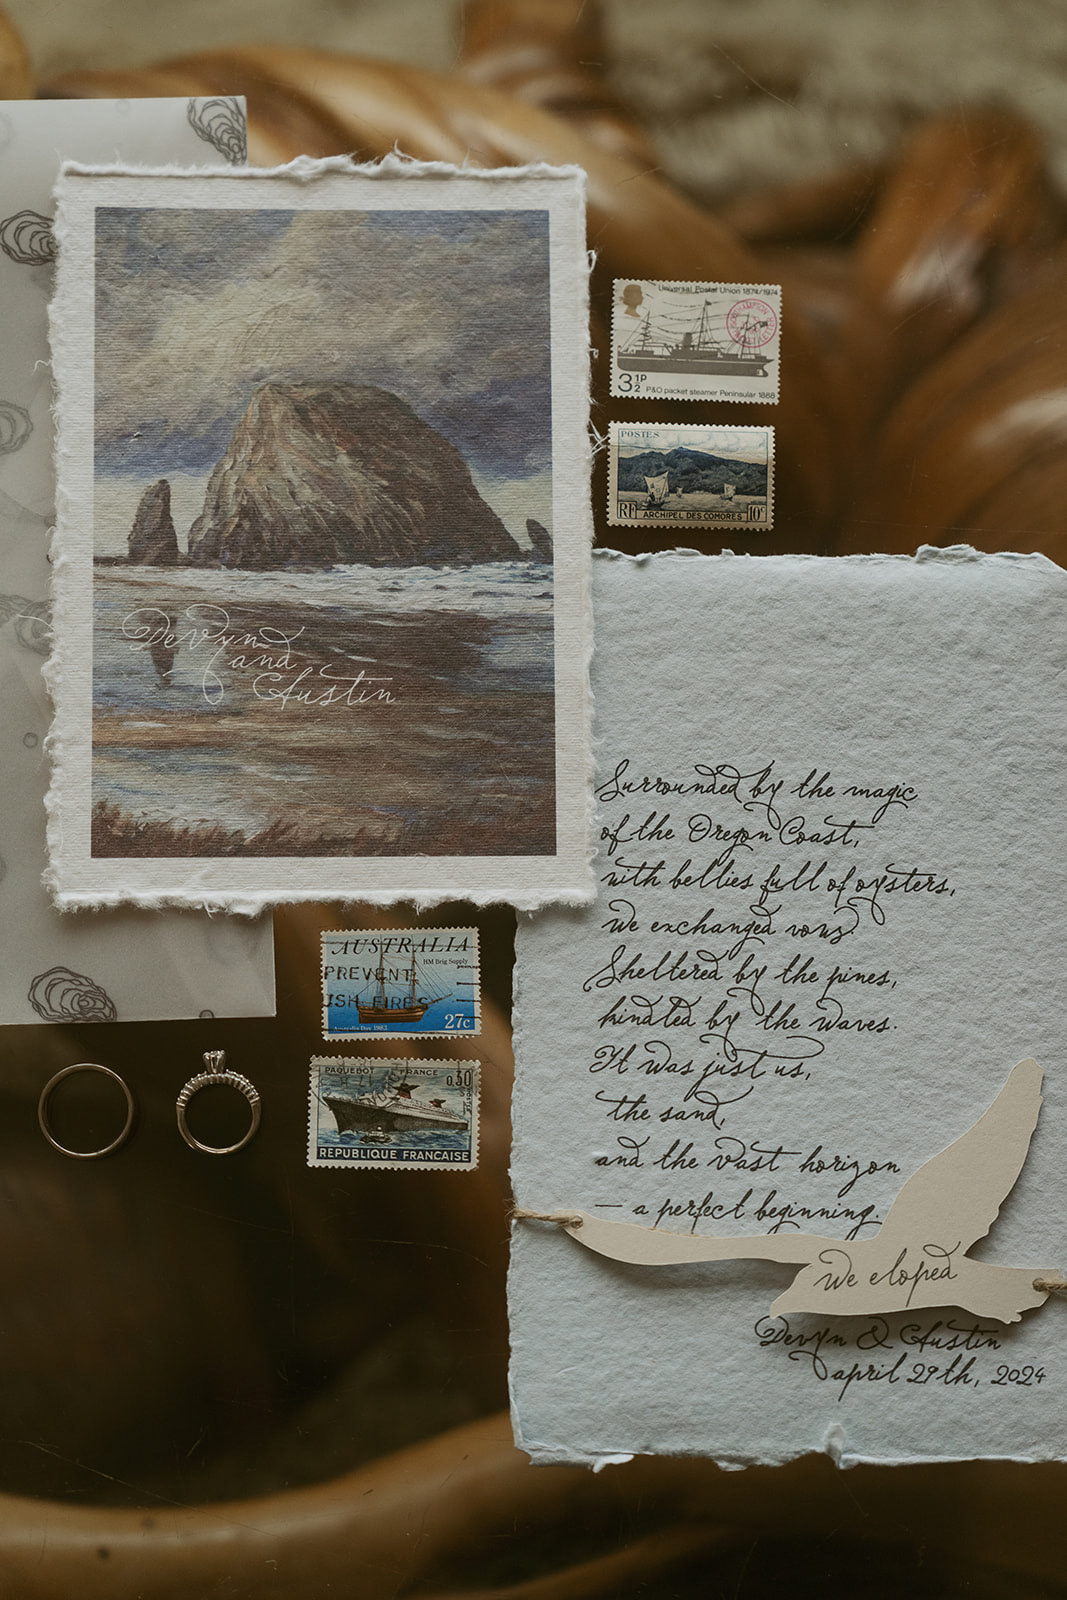 Devyn
and
Austin
Universal Postal Union 1874/1974
3½P
P&O packet steamer Peninsular 1888
POSTES
RF ARCHIPEL DES COMORES 10c
Surrounded by the magic
of the Oregon Coast,
with bellies full of oysters,
we exchanged vows.
Sheltered by the pines,
kindled by the waves.
It was just us,
the sand,
and the vast horizon
— a perfect beginning.
we eloped
Devyn & Austin
april 29th, 2024
AUSTRALIA
HM Brig Supply
PREVENT
ISH FIRES
27c
Australia Day 1983
PAQUEBOT FRANCE
0,30
POSTES
REPUBLIQUE FRANCAISE